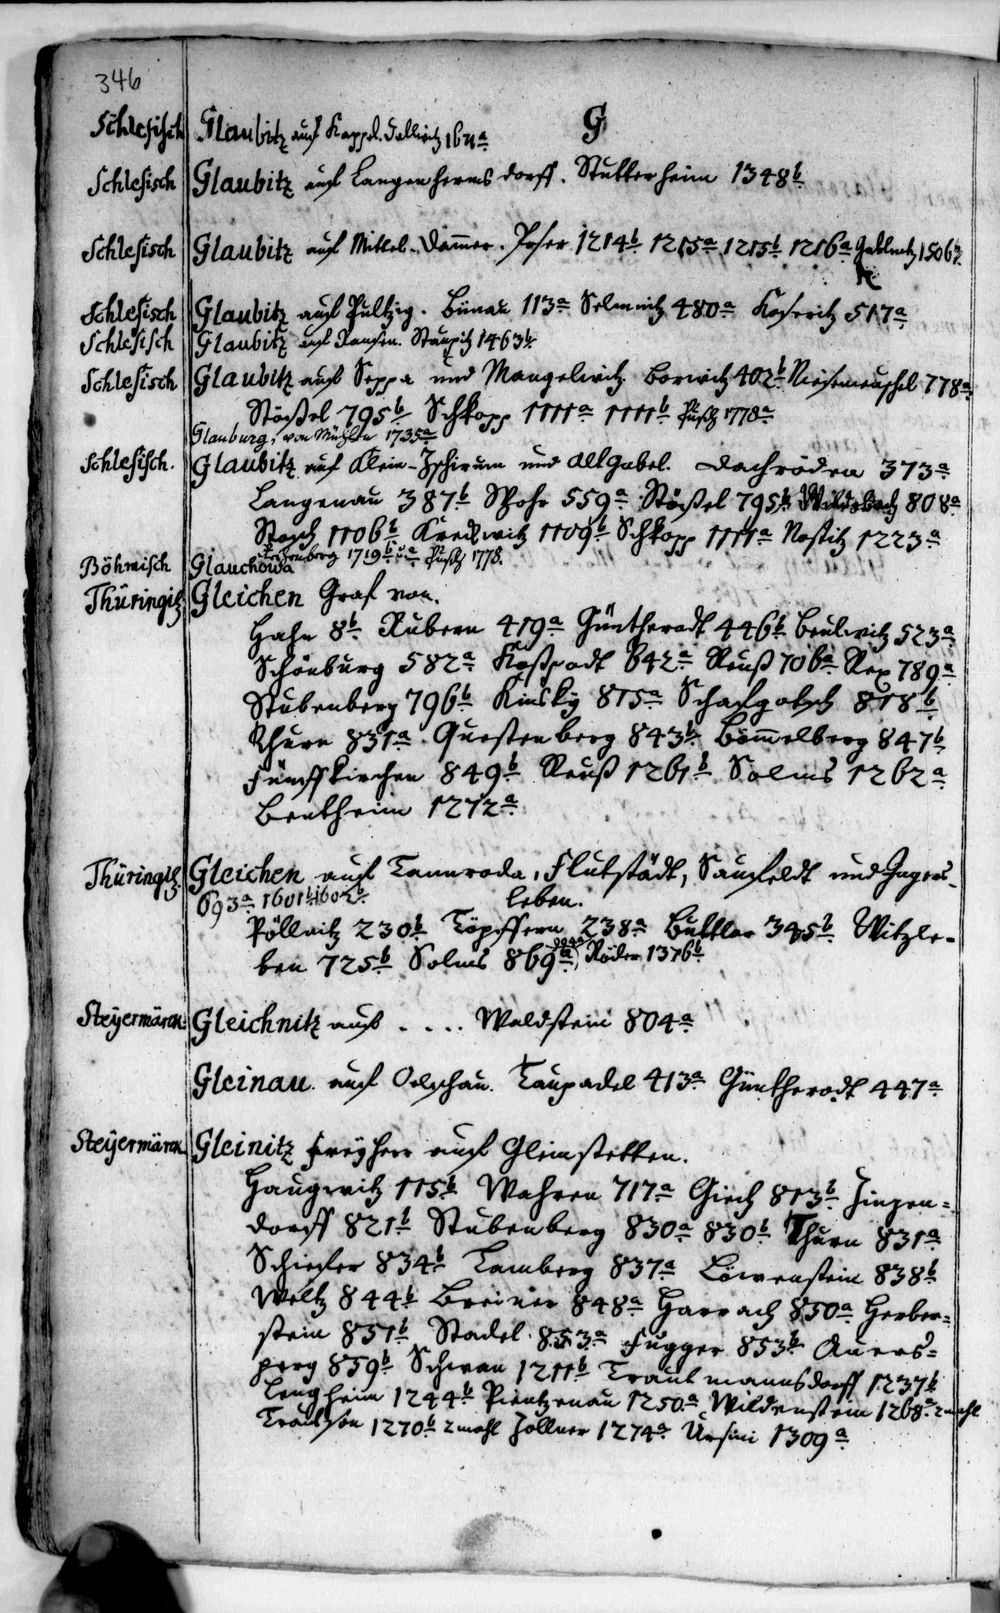 346
G
Schlesisch Glaubitz auf Kappel. 1611a
Schlesisch Glaubitz auf Langenhermsdorff. Stutterheim 1348b
Schlesisch Glaubitz auf Mittel-Dammer. Poser 1214b 1215a 1215b 1216a 1506b
Schlesisch Glaubitz auf Pultzig. Bünau 113a Selmnitz 480a Koseritz 517a
Schlesisch Glaubitz auf Ransen. Staupitz 1463b
Schlesisch Glaubitz auf Seppa und Mangelwitz. Borwitz 402b Niesemeuschel 778a
Stößel 795b Schkopp 1111a 1111b 1778a
Glauburg, von Mühlen 1735a
Schlesisch. Glaubitz auf Klein-Zschirum und Altgabel. Dachröden 373a
Langenau 387b Spohr 559a Stößel 795b 808a
Stosch 1106b Kreckwitz 1109b Schkopp 1111a Nostitz 1223a
1719b 1778.
Böhmisch Glauchowa
Thüringis. Gleichen Graf von.
Hahn 8b Rübern 419a Güntherodt 446b Beulwitz 523a
Schönburg 582a Koßpodt 642a Reuß 706a Rex 789a
Stubenberg 796b Kinsky 815a Schafgotsch 818b
Thurn 831a Questenberg 843b Bömmelberg 847b
Fünffkirchen 849b Reuß 1261b Solms 1262a
Bentheim 1272a
Thüringis. Gleichen auf Tannroda, Flutstädt, Saufeldt und Ingers-
leben.
693a 1601b 1602b
Pöllnitz 230b Töpffern 238a Buttlar 345b Witzle-
ben 725b Solms 869a Röder 1376b
Steyermärck. Gleichnitz auf .... Waldstein 804a
Gleinau auf Oelschau. Taupadel 413a Güntherodt 447a
Steyermärck. Gleinitz Freyherr auf Gleinstetten.
Haugwitz 115b Wahren 717a Giech 813b Zinzen=
dorff 821b Stubenberg 830a 830b Thurn 831a
Schiefer 834b Lamberg 837a Löwenstein 838b
Weltz 844b Breiner 848a Harrach 850a Herber=
stein 851b Stadel 853a Fugger 853b Auers=
perg 859b Schwan 1211b Trautmannsdorff 1237b
Lengheim 1244b Pientzenau 1250a Wildenstein 1268a 2mahl
Trautson 1270b 2mahl Zollner 1274a Ursini 1309a